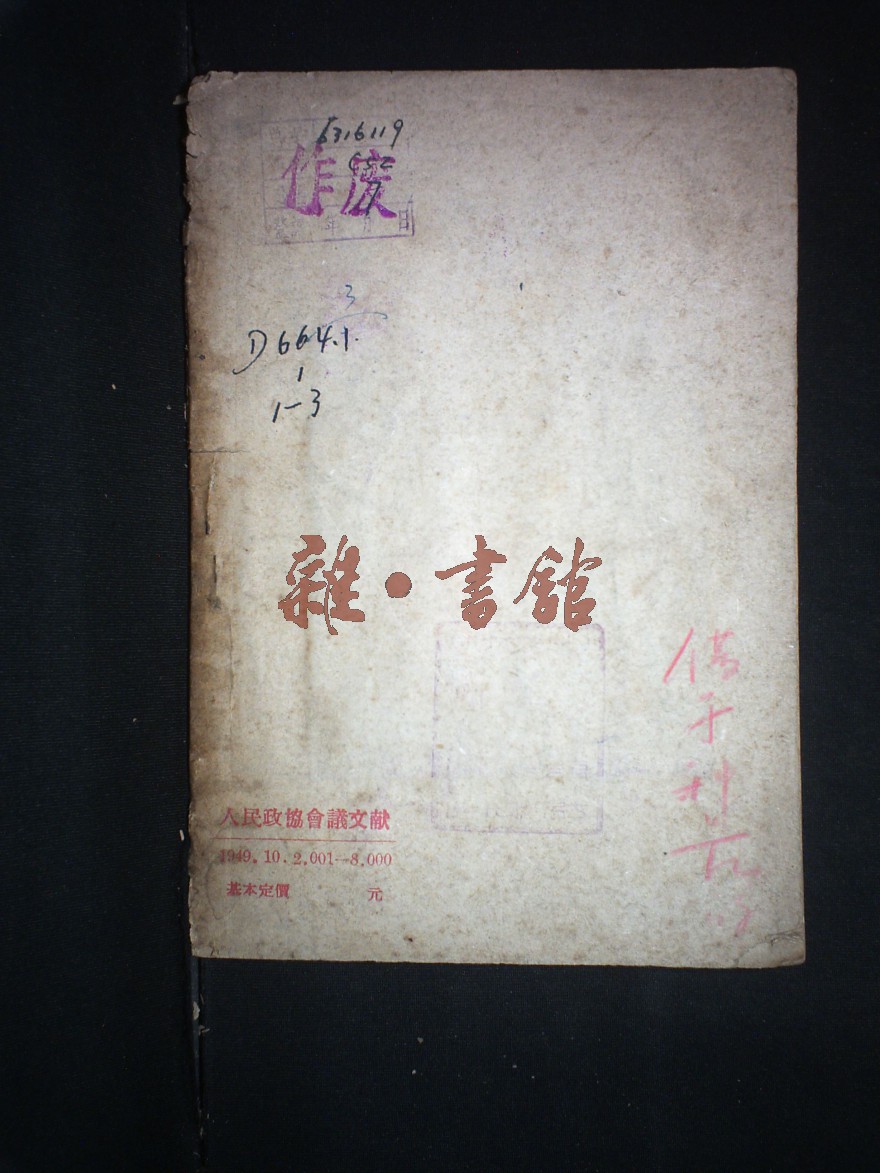 6316119
作废
年 月 日
3
D664.1.
1
1-3
雜•書館
人民政協會議文献
1949.10.2,001--8,000
基本定價 元